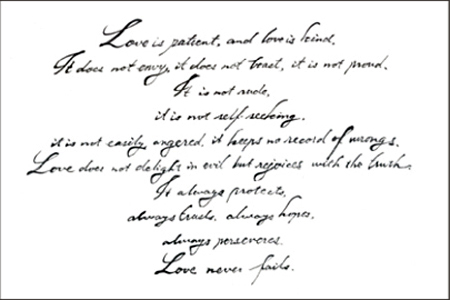 Love is patient, and love is kind.
It does not envy, it does not boast, it is not proud.
It is not rude,
it is not self seeking,
it is not easily angered, it keeps no record of wrongs.
Love does not delight in evil but rejoices with the truth.
It always protects,
always trusts, always hopes,
always perseveres.
Love never fails.